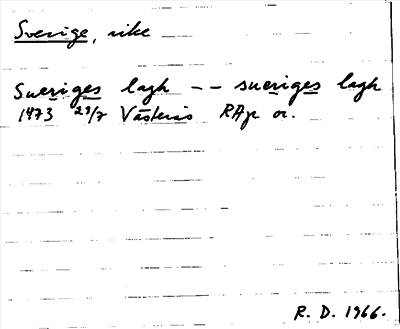 Sverige, rike
Sueriges lagh -- sueriges lagh
1473 29/7 Västerås RAp or.
R. D. 1966.